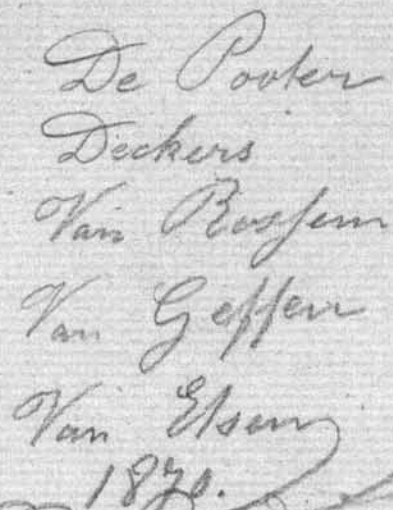 De Pooter
Deckers
Van Rossem
Van Geffen
Van Elsen
1870.